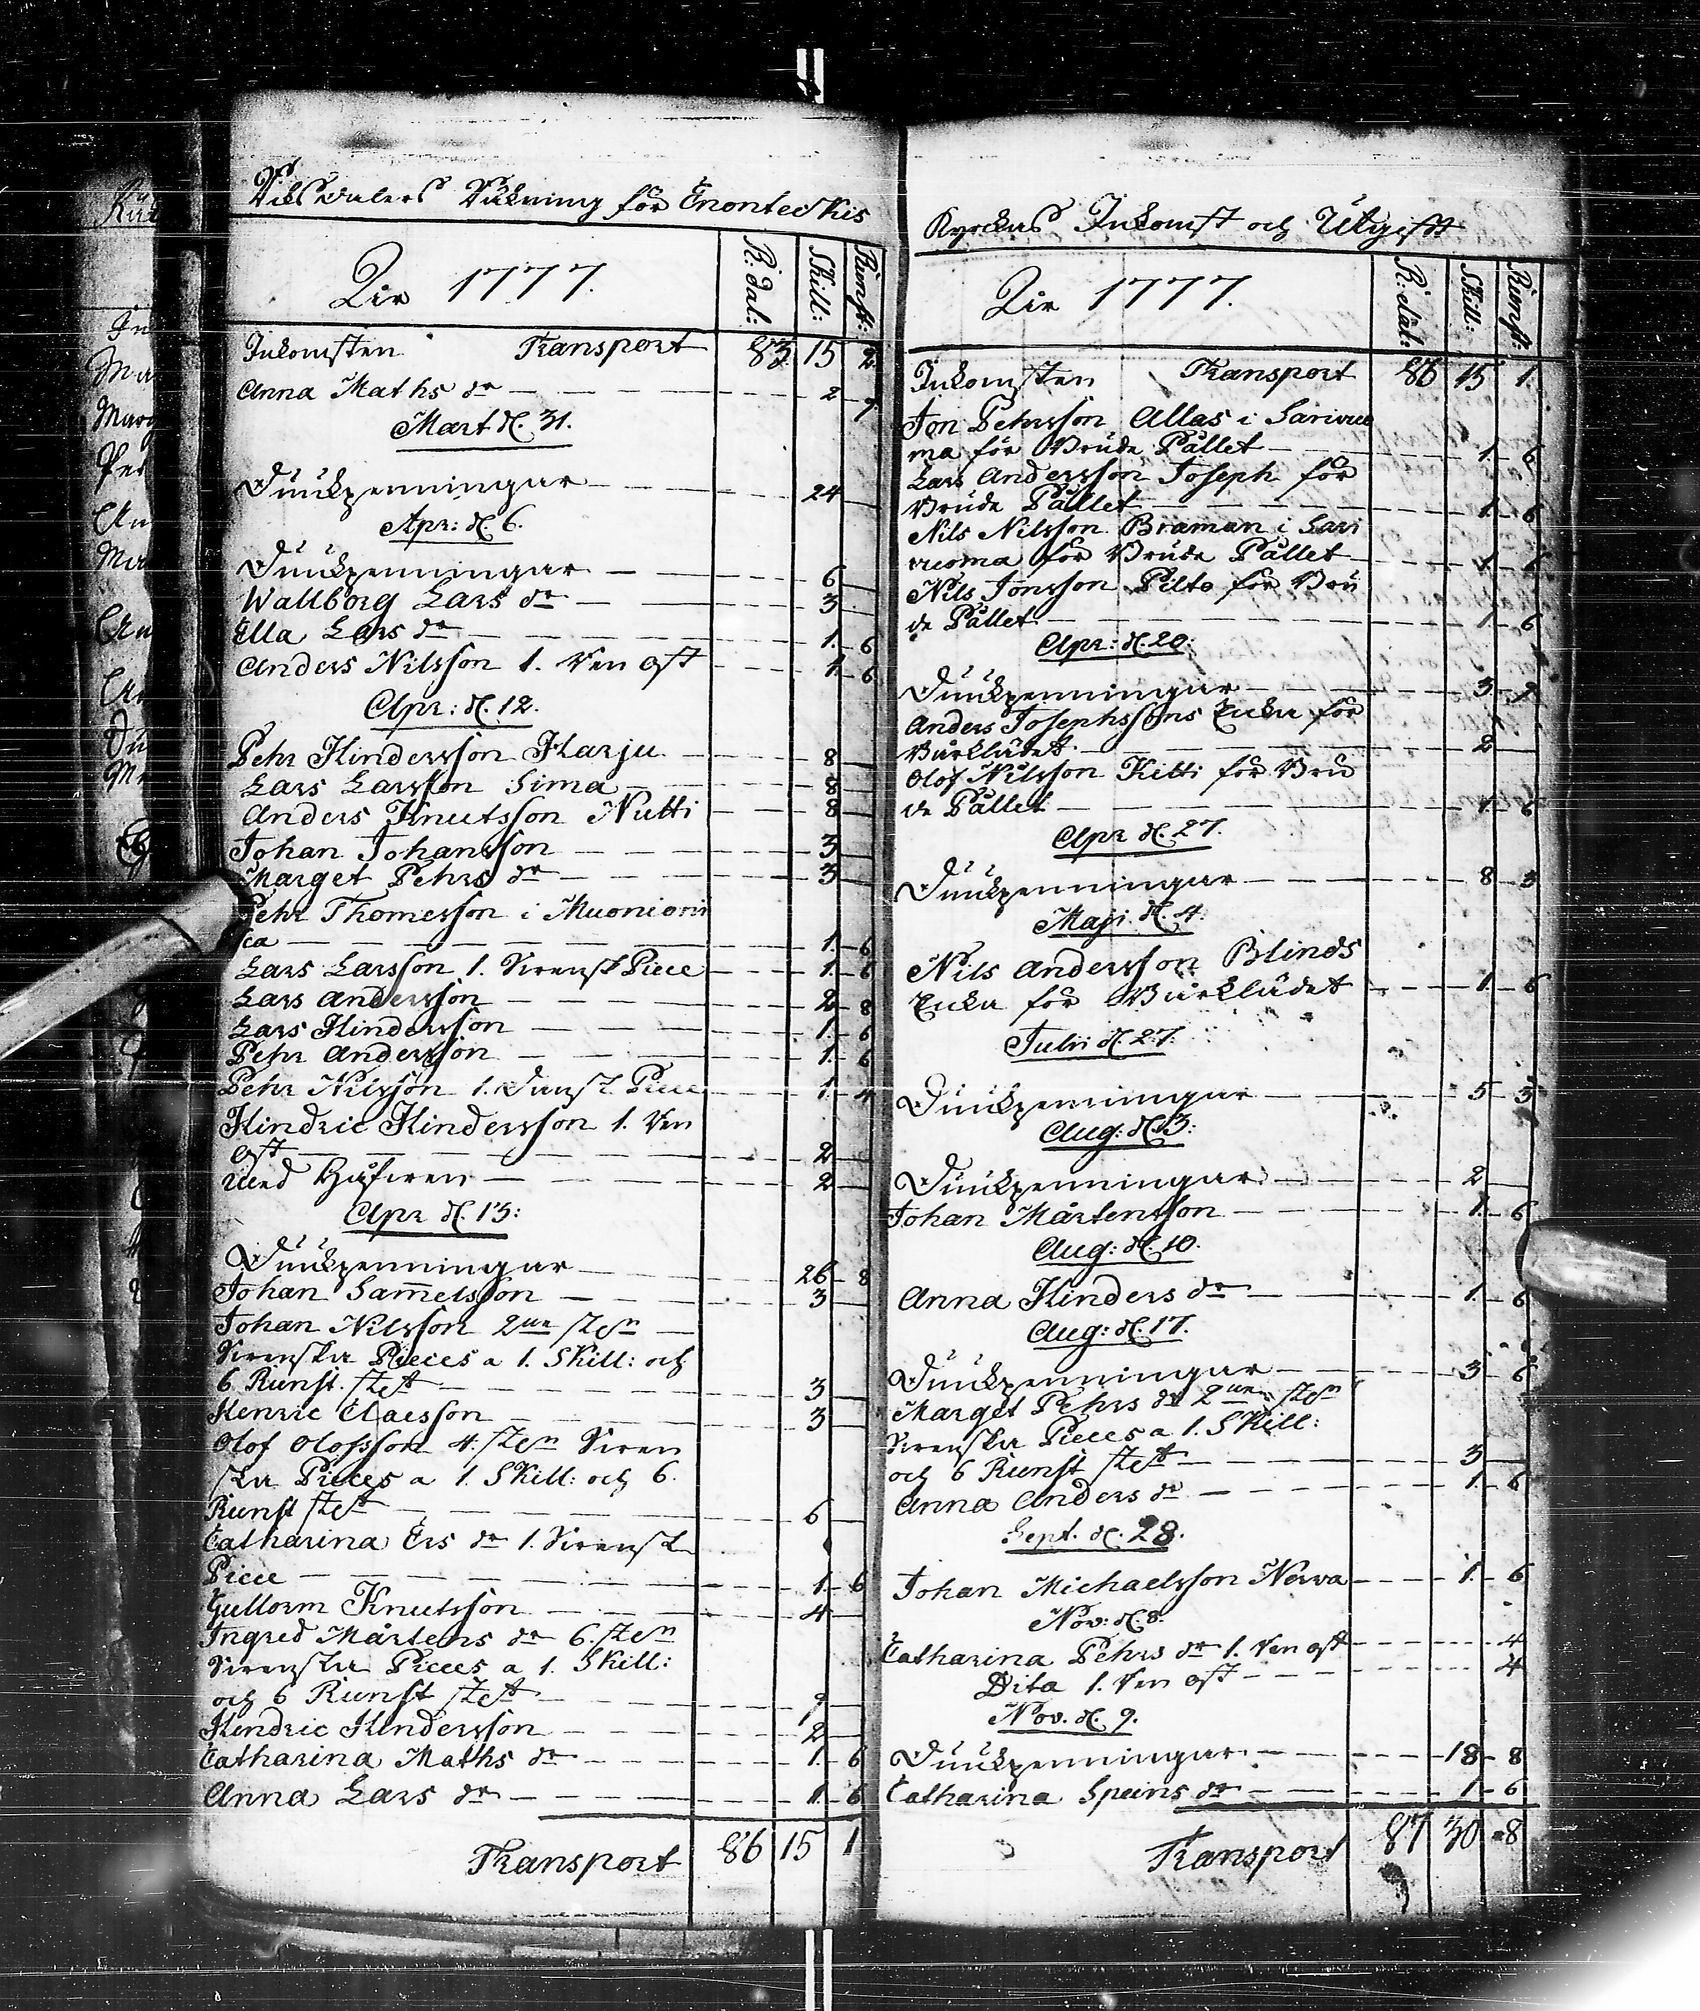 Riksdalers Räkning för Enonteckis
Åhr 1777. R:dal: Skill: Runst:
Inkomsten Transport 83 15 2
Anna Maths dr 2 7
Mart d. 31.
Diuukpenningar 24
Apr: d. 6.
Diuukpenningar 6
Wallborg Lars dr 3
Ella Lars dr 1 6
Anders Nilsson 1. 1 6
Apr: d. 12.
Pehr Hindersson Harju 8
Lars Larsson Sima 8
Anders Knutsson Nutti 8
Johan Johansson 3
Marget Pehrs dr 3
Pehr Thomesson i Muonioni
sca 1 6
Lars Larsson 1. Svensk Piece 1 6
Lars Andersson 2 8
Lars Hindersson 1 6
Pehr Andersson 1 6
Pehr Nilsson 1. Dansk Piece 1 4
Hindric Hindersson 1.
2
med Håfwen 2
Apr d. 13:
Diuukpenningar 26 8
Johan Sam̅elsson 3
Johan Nilsson 2ne stn
Svenska Pieces a 1. Skill: och
6 Runst. st 3
Henric Claesson 3
Olof Olofsson 4. stn Sven
ska Pieces a 1. Skill: och 6.
Runst st 6
Catharina Ers dr 1. Svensk
Piece 1 6
Gullorm Knutsson 4
Ingred Mårtens dr 6. stn
Svenska Pieces a 1. Skill:
och 6 Runst st 9
Hendric Hendersson 2
Catharina Maths dr 1 6
Anna Lars dr 1 6
Transport 86 15 1
Kyrckas Inkomst och Utgift
Åhr 1777. R:dal: Skill: Runst:
Inkomsten Transport 86 15 1.
Jon Pehrsson Allas i Sarivuo
ma för Brude Pallet 1 6
Lars Andersson Joseph för
Brude Pallet 1 6
Nils Nilsson Braman i Sari
vuoma för Brude Pallet 1 6
Nils Jonsson Pilto för Bru
de Pallet 1 6
Apr: d. 20:
Diuukpenningar 3 9
Anders Josephssons Encka för
Bårklädet 2
Olof Nilsson Kitti för Bru
de Pallet 1 6
Apr d. 27.
Diuukpenningar 8 3
Maji d. 4.
Nils Andersson Blinds
Encka för Bårklädet 1 6
Julii d. 27.
Diuukpenningar 5 3
Aug: d. 3:
Diuukpenningar 2
Johan Mårtensson 1 6
Aug: d. 10.
Anna Hinders dr 1 6
Aug: d. 17.
Diuukpenningar 3 6
Marget Pehrs dr 2ne stn
Svenska Pieces a 1. Skill:
och 6 Runst st 3
Anna Anders dr 1 6
Sept. d. 28.
Johan Michaelsson Nerva 1 6
Nov: d. 8.
Catharina Pehrs dr 1. 4
Dita 1. 4
Nov. d. 9.
Diuukpenningar 18 8
Catharina Speins dr 1 6
Transport 87 30 8